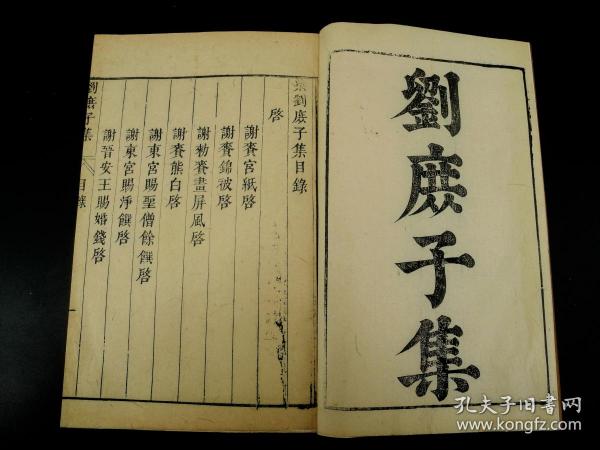 劉庻子集
梁劉庻子集目錄
啓
謝賚宮紙啓
謝賚錦被啓
謝勑賚畫屏風啓
謝賚熊白啓
謝東宮賜聖僧餘饌啓
謝東宮賜淨饌啓
謝晉安王賜婚錢啓
劉庻子集
目錄
孔夫子旧书网
www.kongfz.com